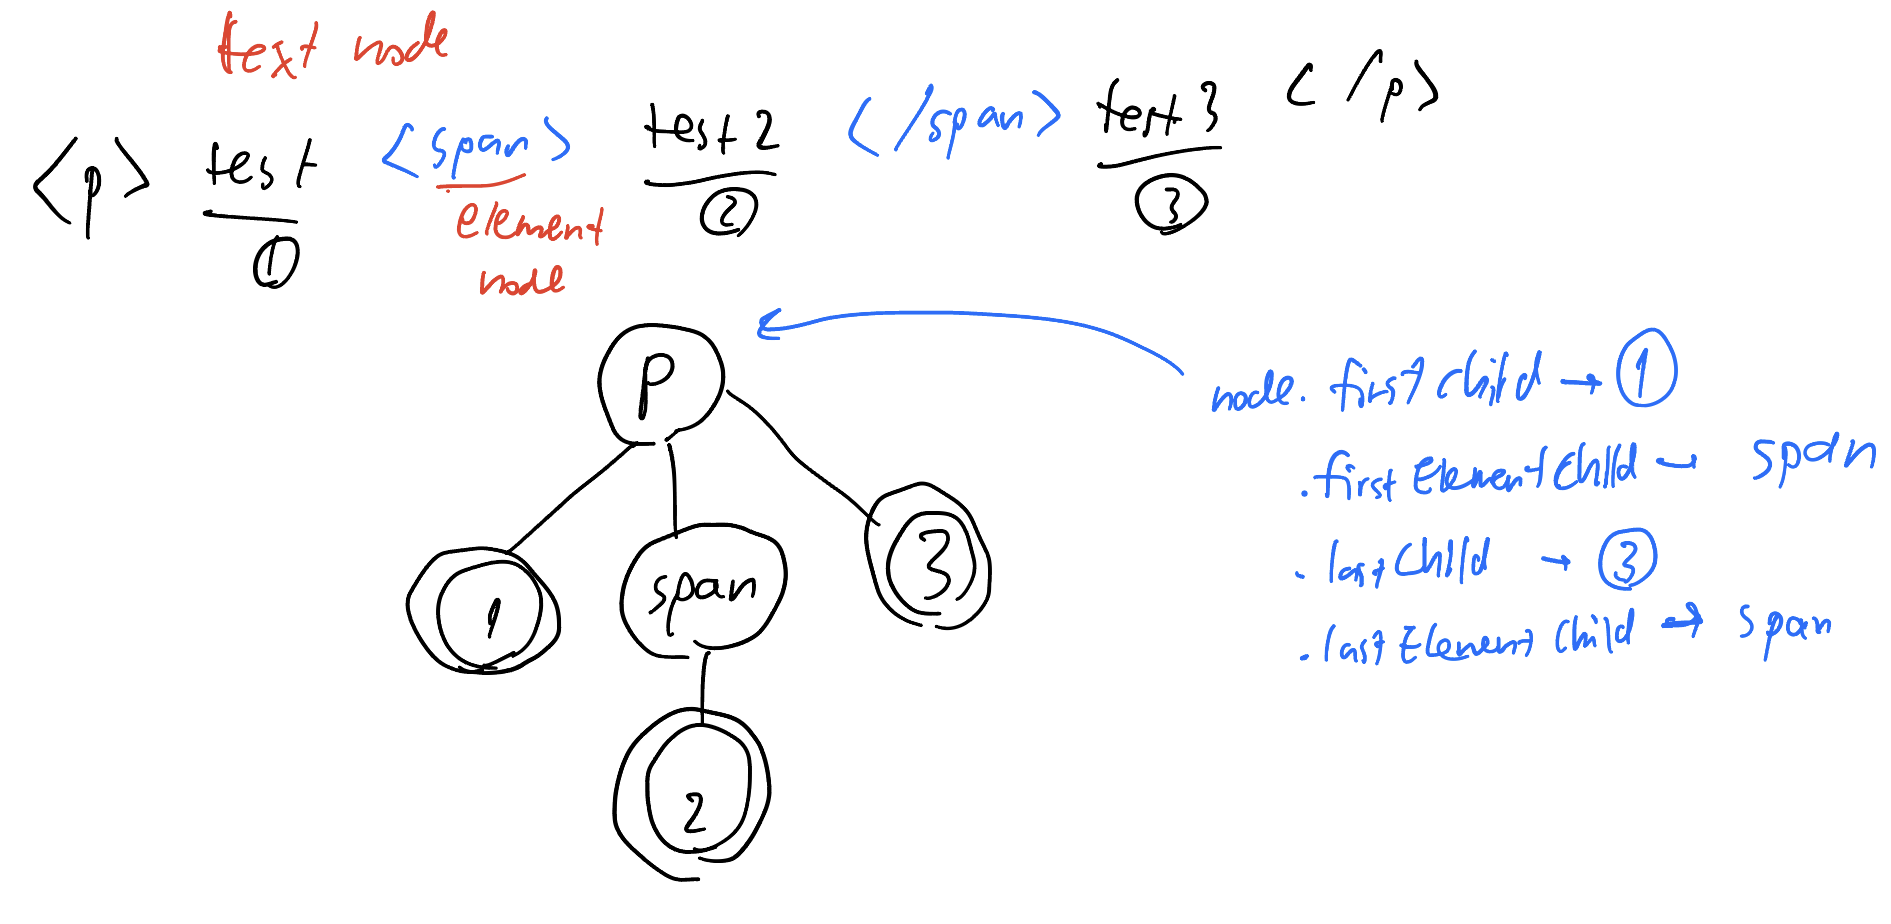 text node
<p> test <span> test 2 </span> test 3 </p>
① ② ③
element
node
P
node. firstChild → ①
.firstElementChild → span
.lastChild → ③
.lastElementChild → span
1 span 3
2